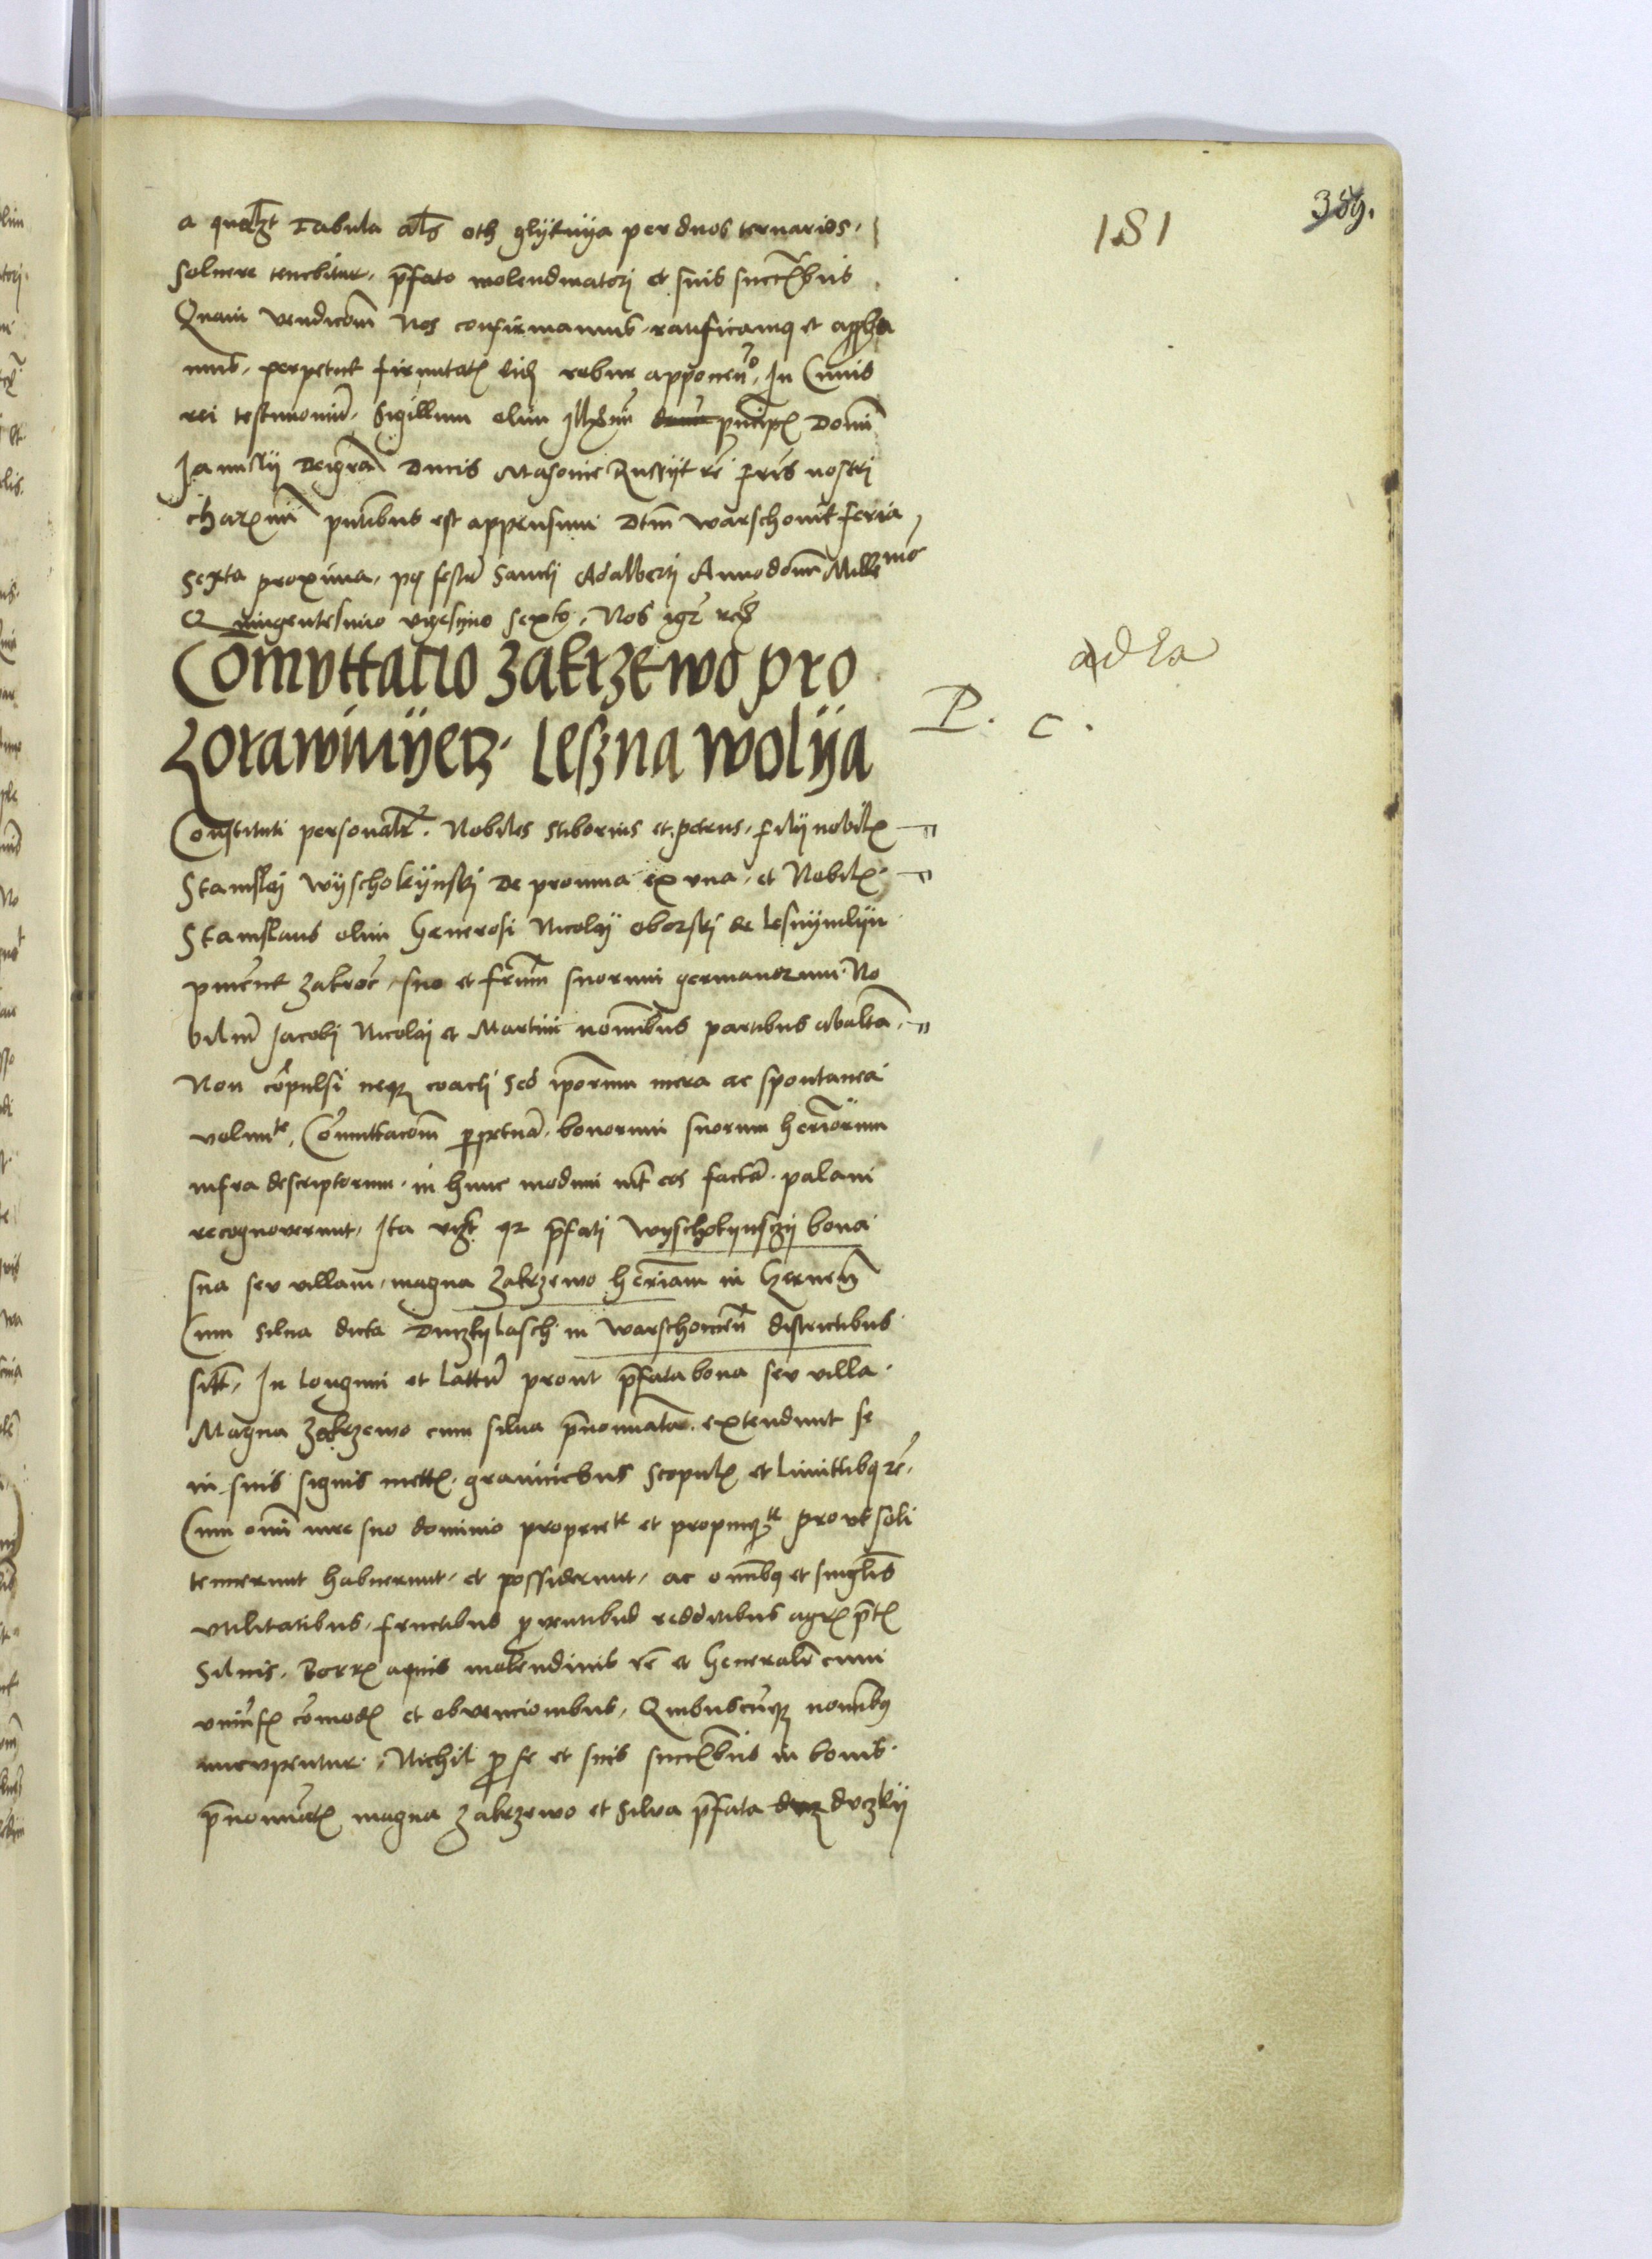 181
389.
a qualzt Tabula als oth glijkuija per duos ternarios.
Soluere tenebitur. pfato molendinatorj et suis succribus
Quam vendicom Nos confirmamus. ratificamq et appba
mus. perpetue firmitatis robur apponen. In Cuius
rei testimoniu. Sigillum olim principis Domi
Janussij Deigra Ducis Masouie Russijt re fris nostri
charmi pntibus est appensum Dtm Warschouie feria
Sexta proxima. pq festu Sancti Adalberti Annodomi Millmo
Quingentesimo vigesimo Sexto. Nos igr
Comuttatio Zakrzewo pro
Zorawiniijecz. Leszna wolija
Constituti personalr. Nobiles Stiborius et petrus. filij nobilis
Stanislaj Wijscholijnskj de promna ex vna. et Nobilis.
Stanislaus olim Generosi Nicolaj oborskj de Lesnijmlijn
zakroc. suo et frum suorum germanorum. No
biliu Jacobj Nicolaj et Martini nomibus partibus abalta.
Non copulsi neqz coacti sed ipormu mera ac spontanea
volunte. Comuttacom ppetua. bonorum suorum heriorum
infra descriptorum. in hunc modum int eos facta. palam
recognoverunt. Ita vizt qz pfatj Wyscholijnsczij bona
sua seu villam. magna Zakrzewo heriam in Gernen
Cum Silua dicta Duczkijlasch in Warschouien districtibus
sitt. In Longum et Lattu prout pfata bona seu villa.
Magna Zakrzewo cum silua pnominata. extendunt se
in suis signis mettis. graniciebus Scopulis et Limittibq re.
Cum omi iure suo dominio propriete et propinqte prout soli
tenuerunt habuerunt. et possiderunt. ac omibq et singlis
vtilitatibus. fructibus puentibus redditibus agris ptis
Siluis. Borris aquis molendinis re et Generalr cum
vniusis comodis et obuencionibus. Quibuscuqz nomibq
nuncupentur. Nichil p se et suis succribus in bonis.
pnominatis magna Zakrzewo et Silua pfata duczkij
adla
P. c.